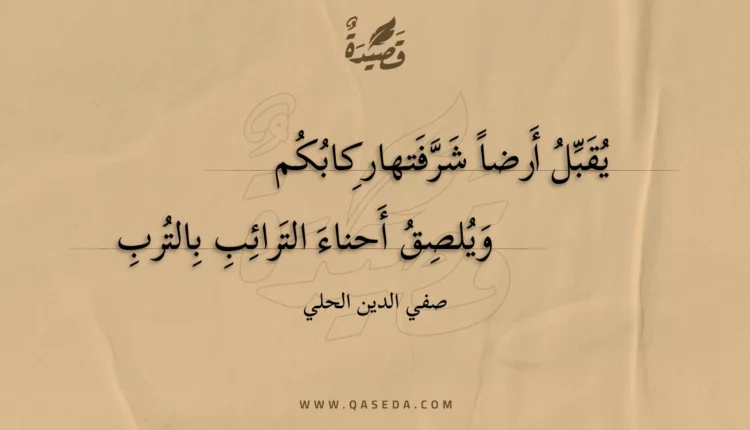 قَصِيدَةٌ
يُقَبِّلُ أَرضاً شَرَّفَتها رِكابُكُم
وَيُلصِقُ أَحناءَ التَرائِبِ بِالتُربِ
صفي الدين الحلي
WWW.QASEDA.COM